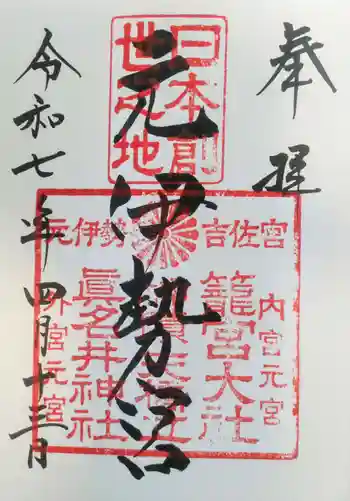 奉拝
日本創
世之地
元伊勢
元伊勢 吉佐宮
内宮元宮
籠宮大社
眞名井神社
外宮元宮
令和七年四月十三日